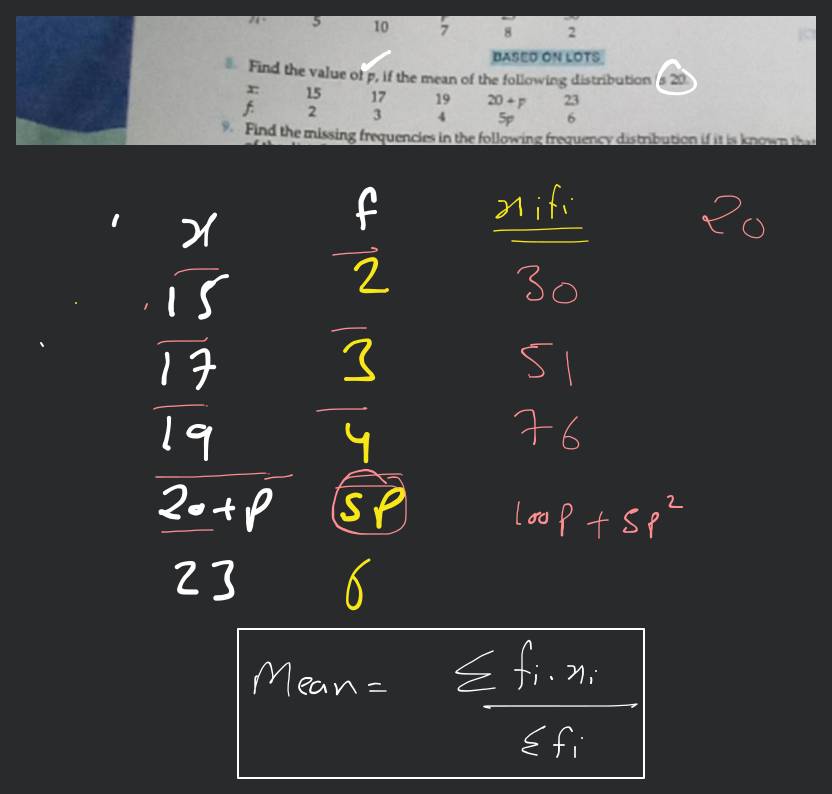 5 10 7 8 2
BASED ON LOTS
8. Find the value of p, if the mean of the following distribution is 20.
x: 15 17 19 20 + p 23
f: 2 3 4 5p 6
9. Find the missing frequencies in the following frequency distribution if it is known that
x f xifi 20
15 2 30
17 3 51
19 4 76
20+p 5p 100p + 5p²
23 6
Mean = Σ fi . xi
Σfi